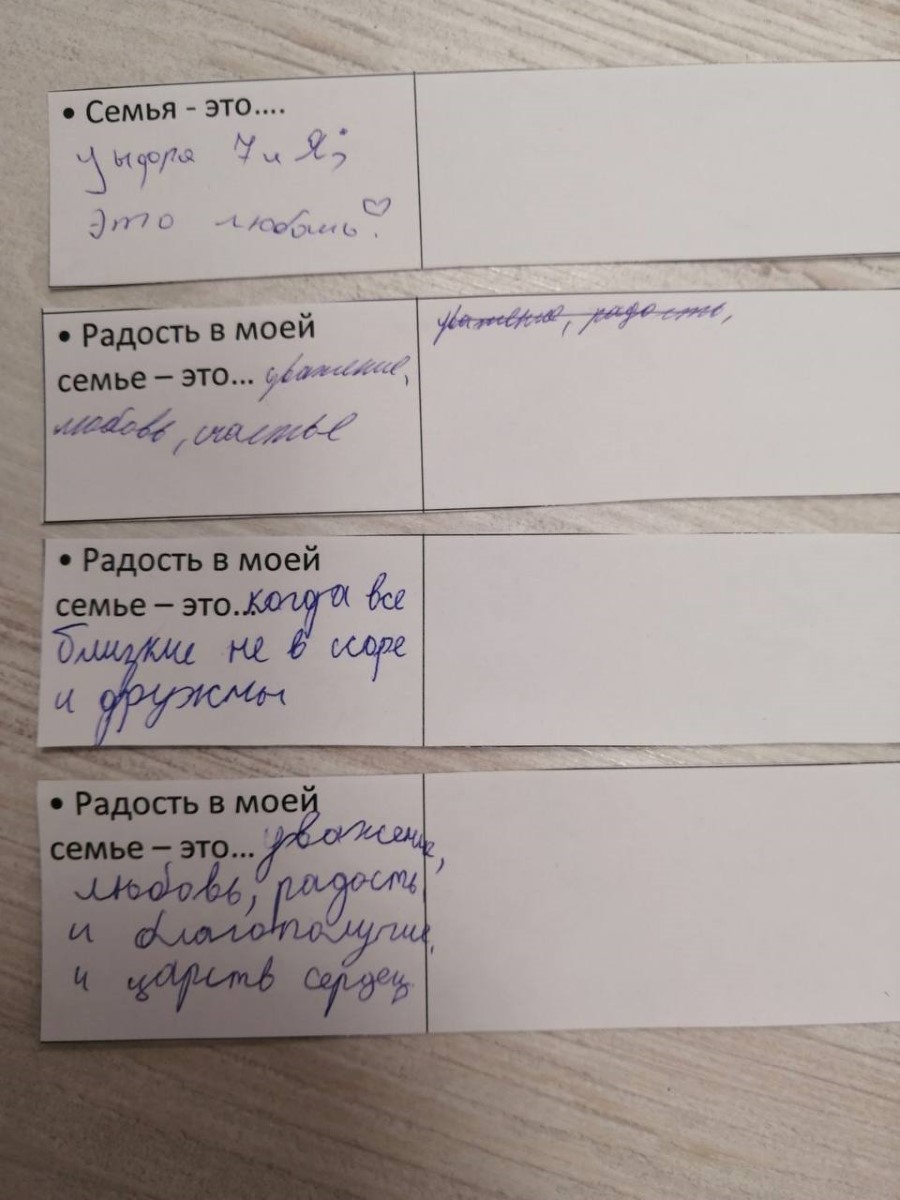 • Семья - это....
7 и Я;
это любовь!
• Радость в моей
семье – это... уважение,
любовь, счастье
уважение, радость,
• Радость в моей
семье – это...когда все
близкие не в ссоре
и дружны
• Радость в моей
семье – это... уважение,
любовь, радость
и благополучие,
и царств сердец